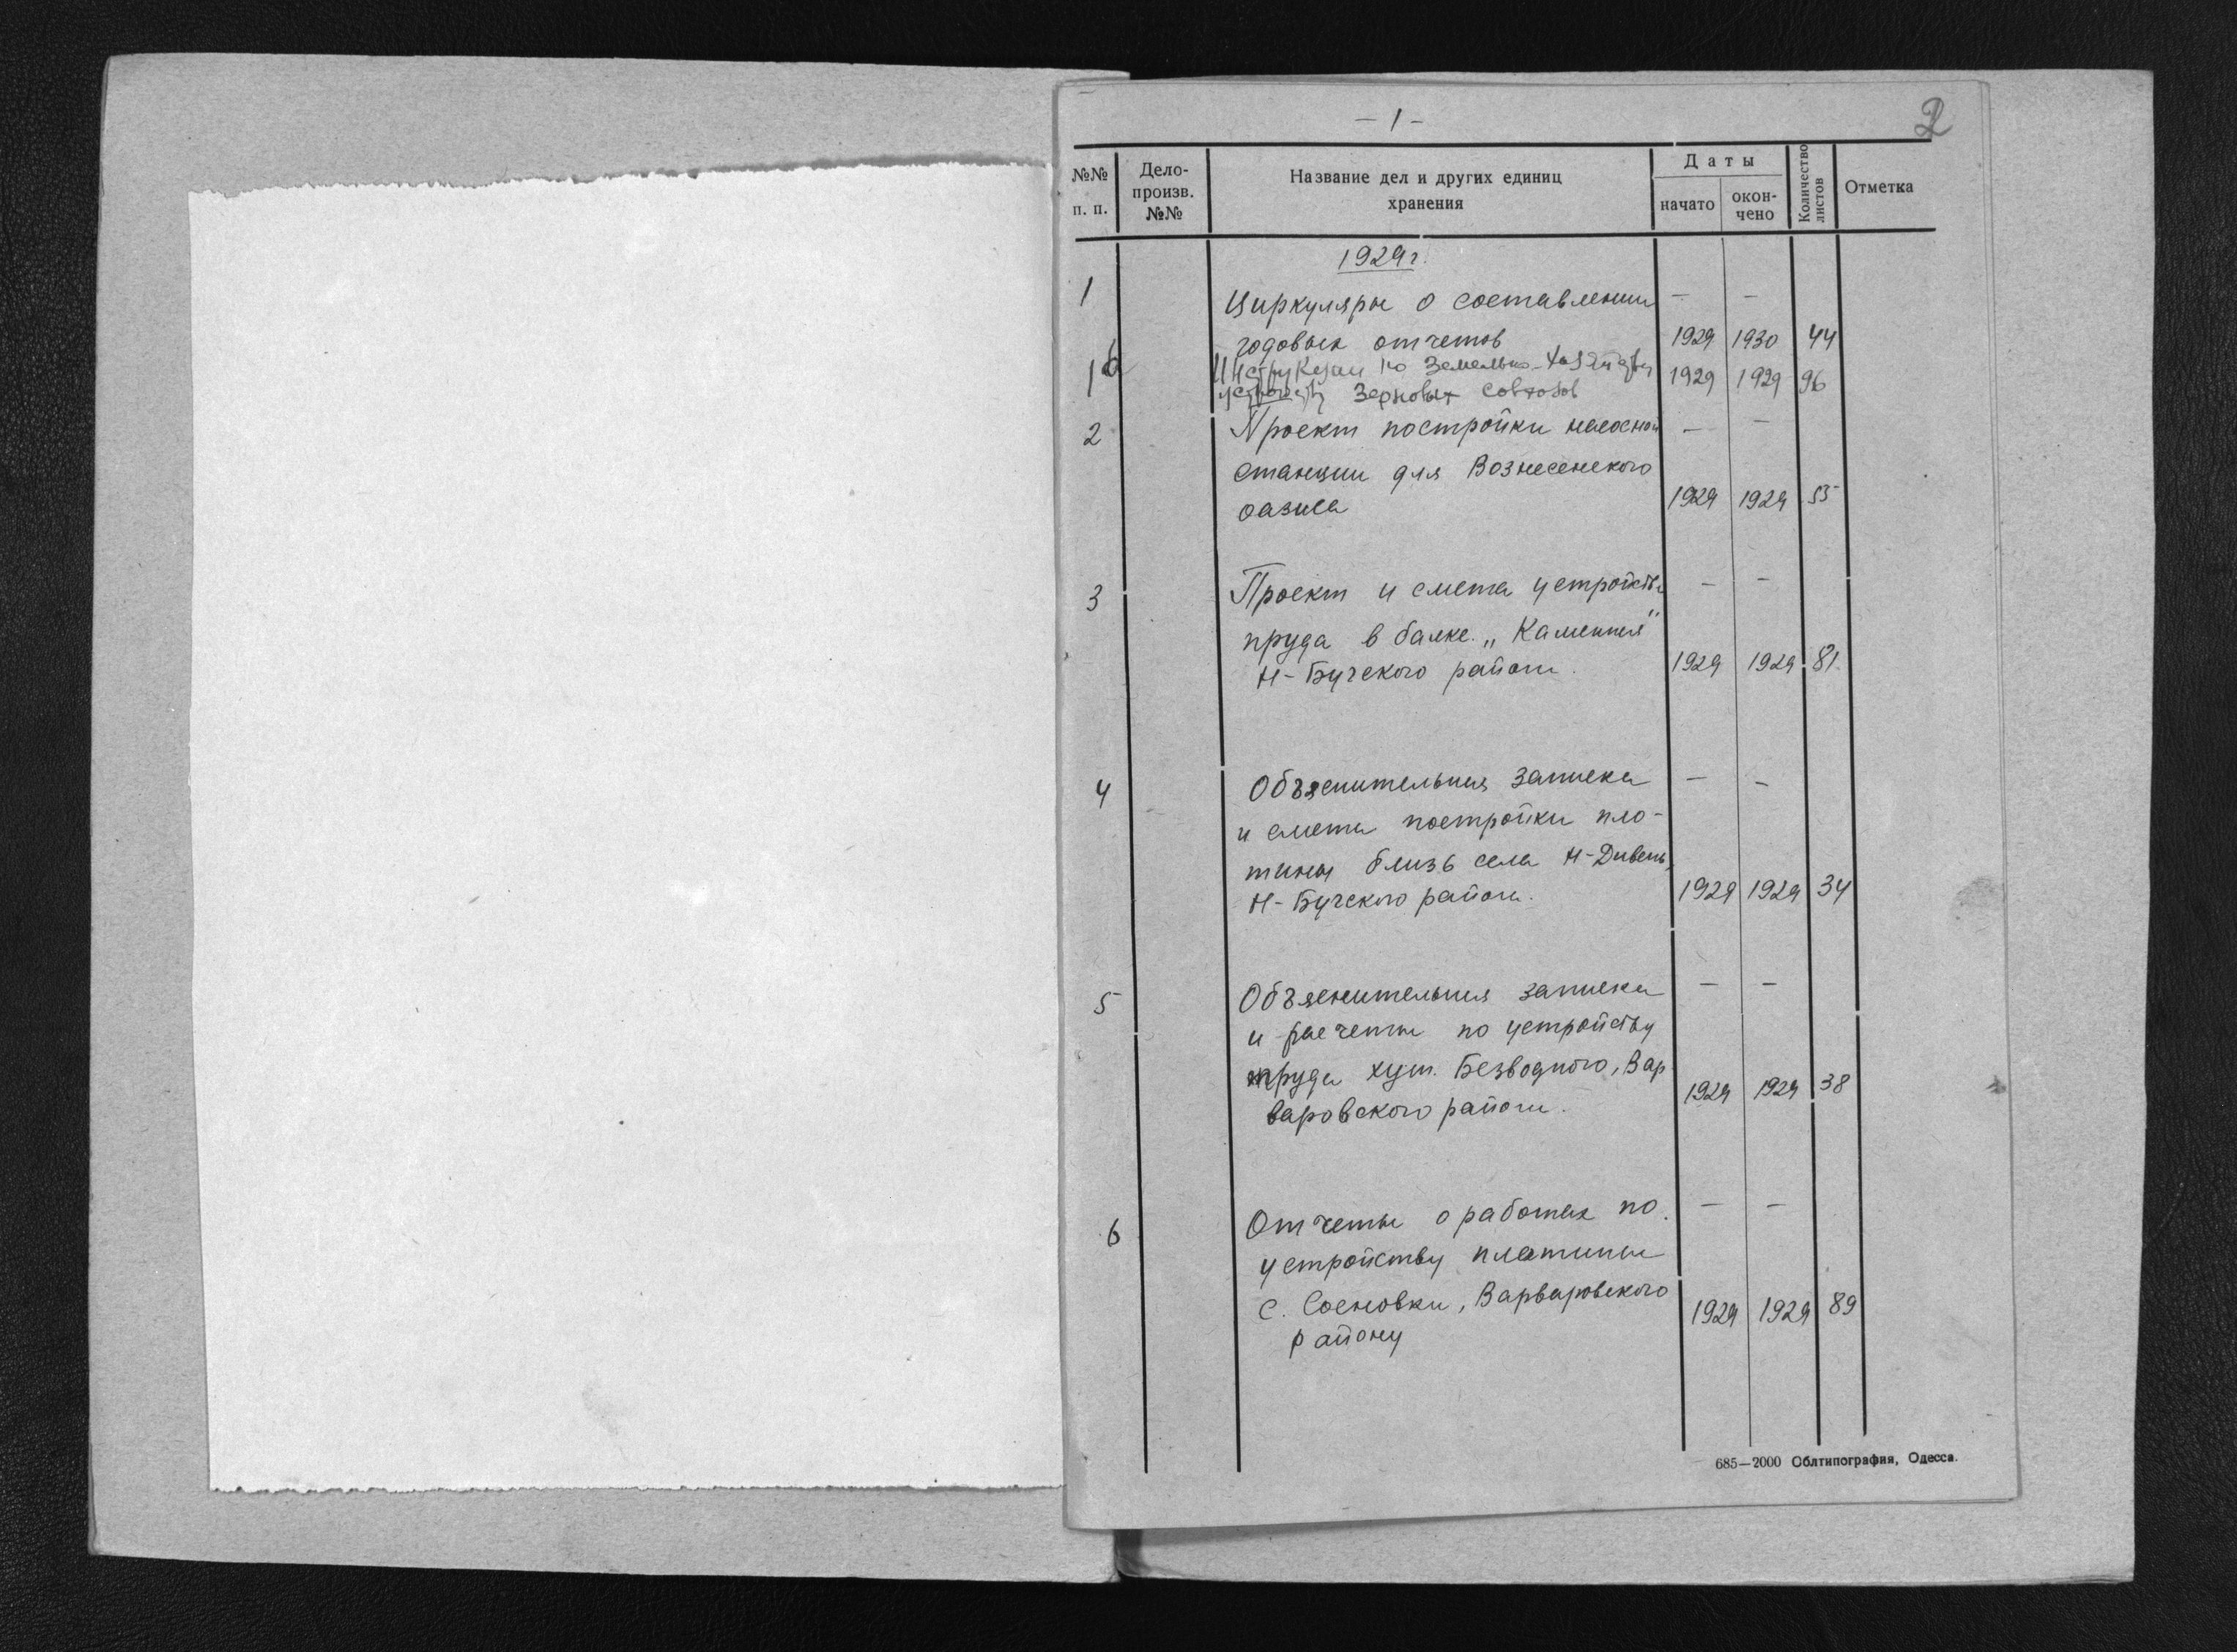 — 1 —
2
№№ п. п.
Дело-произв. №№
Название дел и других единиц хранения
Даты
начато
окон-чено
Количество листов
Отметка
1929 г.
1
Циркуляры о составлении — —
годовых отчетов 1929 1930 44
1б Инструкции по Земельно- 1929 1929 96
Зерновых совхозов
2 Проект постройки насосной — —
станции для Вознесенского
оазиса 1929 1929 55
3 Проект и смета устройства — —
пруда в балке „Каменная"
Н-Бугского района. 1929 1929 81.
4 Объяснительная записка — —
и смета постройки пло-
тины близь села Н-
Н-Бугского района. 1929 1929 34
5 Объяснительная записка — —
и расчеты по устройству
пруда хут. Безводного, Вар
варовского района. 1929 1929 38
6 Отчеты о работах по — —
устройству платины
с. Сосновки, Варваровского 1929 1929 89
району
685—2000 Облтипография, Одесса.